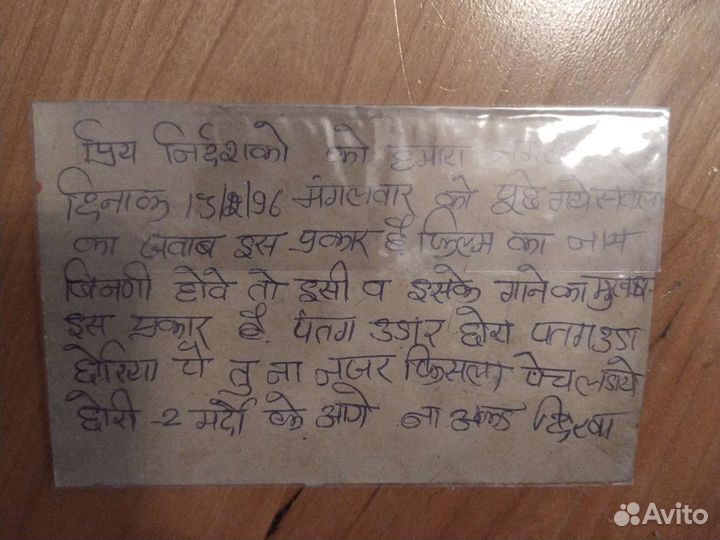 प्रिय निर्देशको को हमारा
दिनाक 13/2/96 मंगलवार को पूछे गये सवाल
का जवाब इस प्रकार है फिल्म का नाम
बिनणी होवे तो इसी व इसके गाने का मुखडा
इस प्रकार है पंतग उडार छोरा पतग उडा
छोरिया पे तु ना नजर फिसला पेच लडाये
छोरी -2 मर्दो के आगे ना अकड दिखा
Avito